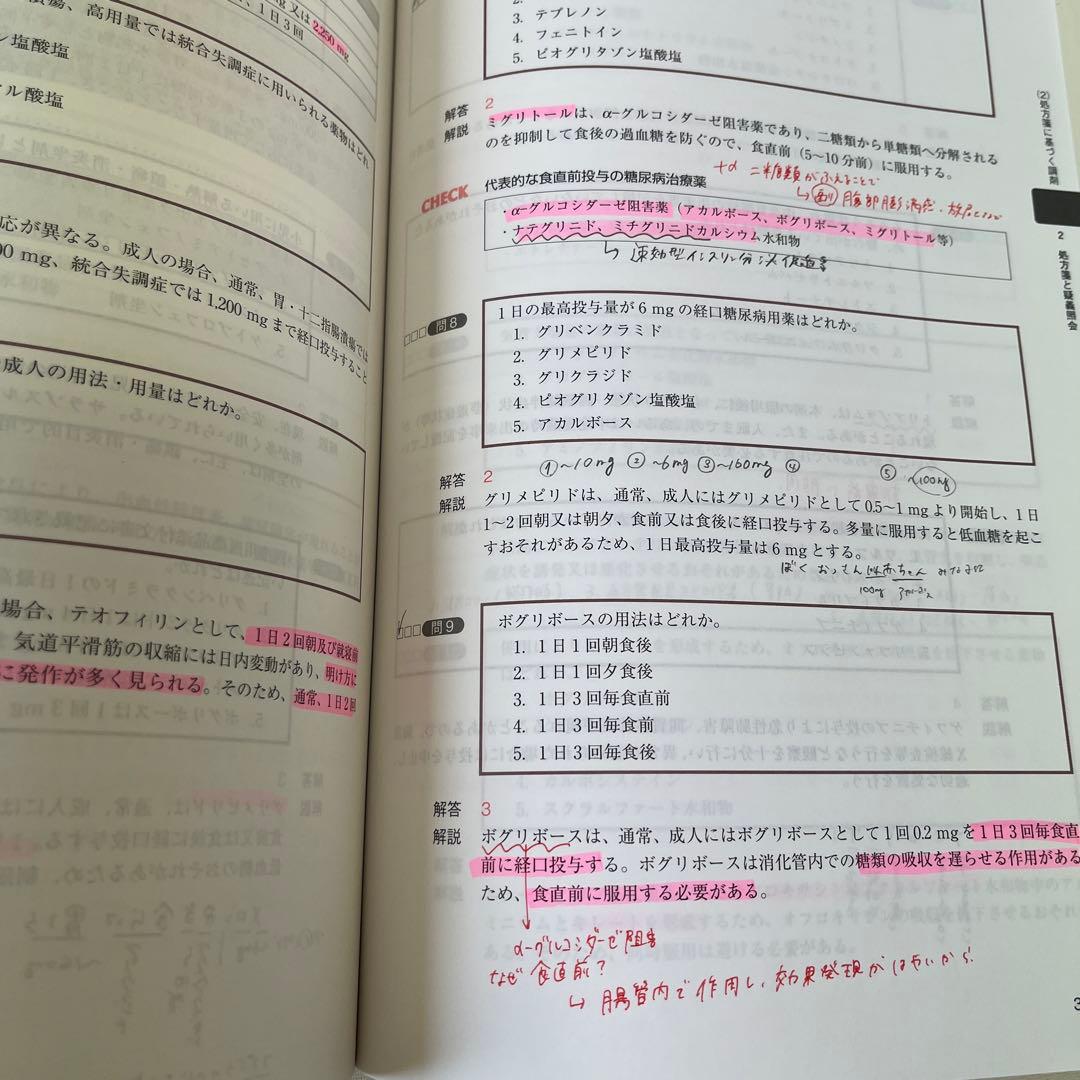 mg 又は 2,250 mg
、1日3回
潰瘍、高用量では統合失調症に用いられる薬物はどれ
ン塩酸塩
ル酸塩
応が異なる。成人の場合、通常、胃・十二指腸潰瘍では
00 mg、統合失調症では 1,200 mg まで経口投与すること
成人の用法・用量はどれか。
場合、テオフィリンとして、1日2回朝及び就寝前
気道平滑筋の収縮には日内変動があり、明け方に
に発作が多く見られる。そのため、通常、1日2回
2.
3. テプレノン
4. フェニトイン
5. ピオグリタゾン塩酸塩
解答 2
解説 ミグリトールは、α-グルコシダーゼ阻害薬であり、二糖類から単糖類へ分解される
のを抑制して食後の過血糖を防ぐので、食直前（5~10分前）に服用する。
+α 二糖類がふえることで
↳ 副 腹部膨満感・放屁
CHECK 代表的な食直前投与の糖尿病治療薬
・α-グルコシダーゼ阻害薬（アカルボース、ボグリボース、ミグリトール等）
・ナテグリニド、ミチグリニドカルシウム水和物
↳ 速効型インスリン分泌促進薬
□□□ 問8
1日の最高投与量が 6 mg の経口糖尿病用薬はどれか。
1. グリベンクラミド
2. グリメピリド
3. グリクラジド
4. ピオグリタゾン塩酸塩
5. アカルボース
① ~10mg ② ~6mg ③ ~160mg ④ ⑤ ~100mg
解答 2
解説 グリメピリドは、通常、成人にはグリメピリドとして 0.5~1 mg より開始し、1日
1~2回朝又は朝夕、食前又は食後に経口投与する。多量に服用すると低血糖を起こ
すおそれがあるため、1日最高投与量は 6 mg とする。
ぼく おっさん 赤ちゃん
100mg
□□□ 問9
ボグリボースの用法はどれか。
1. 1日1回朝食後
2. 1日1回夕食後
3. 1日3回毎食直前
4. 1日3回毎食前
5. 1日3回毎食後
解答 3
解説 ボグリボースは、通常、成人にはボグリボースとして1回 0.2 mg を1日3回毎食直
前に経口投与する。ボグリボースは消化管内での糖類の吸収を遅らせる作用がある
ため、食直前に服用する必要がある。
α-グルコシダーゼ阻害
なぜ食直前？
↳ 腸管内で作用し、効果発現がはやいから
(2) 処方箋に基づく調剤
2 処方箋と疑義照会
3